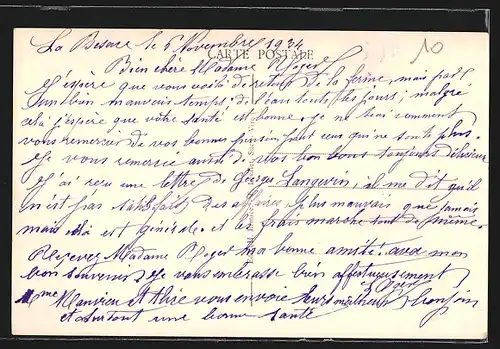 La Besace le 6 Novembre 1934
10
CARTE POSTALE
Bien chère Madame Roger
J'espère que vous voilà de retour de la ferme, mais par
un bien mauvais temps; de l'eau tous les jours; malgré
cela j'espère que votre santé est bonne. Je ne sais comment
vous remercier de vos bonnes pour ceux qui ne sont plus.
Je vous remercie aussi de vos bons bons toujours délicieux
J'ai reçu une lettre de Georges Langevin, il me dit qu'il
n'est pas satisfait des affaires plus mauvais que jamais
mais cela est général et les frais marche tout de même.
Recevez Madame Roger ma bonne amitié avec mon
bon souvenir, Je vous embrasse bien affectueusement
Mme Manvieu et vous envoie leurs meilleurs bonjour
et surtout une bonne santé